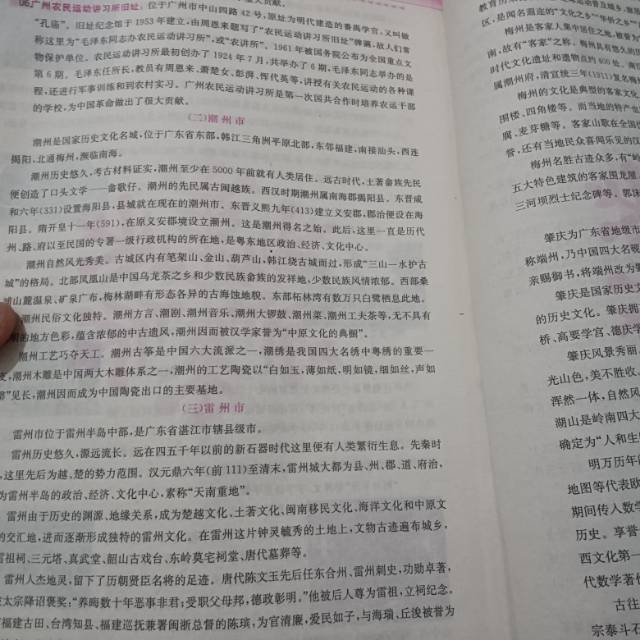 06广州农民运动讲习所旧址: 位于广州市中山四路42号,原址为明代建造的番禺学宫,又叫做
"孔庙"。旧址纪念馆于1953年建立,由周恩来题写了"农民运动讲习所旧址"牌匾,故人们常
称这里为"毛泽东同志办农民运动讲习所",或"农讲所"。1961年被国务院公布为全国重点文
物保护单位。农民运动讲习所最初创办了1924年7月,共举办了6期,毛泽东同志举办的是
第6期。毛泽东任所长,教员有周恩来、萧楚女、彭湃、恽代英等,讲授有关农民运动的各种课
程,还进行军事训练和到农村实习。广州农民运动讲习所是第一次国共合作时培养农运干部
的学校,为中国革命做出了很大贡献。
(二)潮州市
潮州是国家历史文化名城,位于广东省东部,韩江三角洲平原北部,东邻福建,南接汕头,西连
揭阳,北通梅州,濒临南海。
潮州历史悠久,考古材料证实,潮州至少在5000年前就有人类居住。远古时代,土著畲族先民
便创造了口头文学——畲歌仔。潮州的先民属古闽越族。西汉时期潮州属南海郡揭阳县。东晋咸
和六年(331)设置海阳县,县城就在现在的潮州市。东晋义熙九年(413)建立义安郡,郡治便设在海
阳县。隋开皇十一年(591),在原义安郡境设立潮州。这是潮州得名之始。此后,这里一直是历代
州、路、府以至民国的专署一级行政机构的所在地,是粤东地区政治、经济、文化中心。
潮州自然风光秀美。古城区内有笔架山、金山、葫芦山,韩江绕古城而过,形成"三山一水护古
城"的格局。北部凤凰山是中国乌龙茶之乡和少数民族畲族的发祥地,少数民族风情浓郁。西部桑
浦山麓温泉、矿泉广布,梅林湖畔有形态各异的古海蚀地貌。东部柘林湾有数万只白鹭栖息此地。
潮州民俗文化独特。潮州方言、潮剧、潮州音乐、潮州大锣鼓、潮州菜、潮州工夫茶等,无不具有
的地方色彩,蕴含浓郁的中古遗风,潮州因而被汉学家誉为"中原文化的典橱"。
潮州工艺巧夺天工。潮州古筝是中国六大流派之一,潮绣是我国四大名绣中粤绣的重要一
支,潮州木雕是中国两大木雕体系之一,潮州的工艺陶瓷以"白如玉,薄如纸,明如镜,细如丝,声如
磬"见长,潮州因而成为中国陶瓷出口的主要基地。
(三)雷州市
雷州市位于雷州半岛中部,是广东省湛江市辖县级市。
雷州历史悠久,源远流长。远在四五千年以前的新石器时代这里便有人类繁衍生息。先秦时
,这里先后为越、楚的势力范围。汉元鼎六年(前111)至清末,雷州城大都为县、州、郡、道、府治,
为雷州半岛的政治、经济、文化中心,素称"天南重地"。
雷州由于历史的渊源、地缘关系,成为楚越文化、土著文化、闽南移民文化、海洋文化和中原文
的交汇地,进而逐渐形成独特的雷州文化。在雷州这片钟灵毓秀的土地上,文物古迹遍布城乡,
雷祖祠、三元塔、真武堂、韶山古戏台、东岭莫宅祠堂、唐代墓葬等。
雷州人杰地灵,留下了历朝贤臣名将的足迹。唐代陈文玉先后任东合州、雷州刺史,功勋卓著,
太宗降诏褒奖:"养晦数十年恶事非君;受职父母邦,德政彰明。"他被后人尊为雷祖,立祠纪念。
福建古田、台湾知县、福建巡抚兼署闽浙总督的陈瑸,为官清廉,爱民如子,与海瑞、丘浚被誉为
教育历史
区,是闻名遐迩的"文化之乡""华侨之乡"
南,故有"客家"之称。梅州具有悠久的
时代文化遗址和遗物点约400处。南
属潮州府,清宣统三年(1911)复名梅州
梅州的文化是典型的客家文化,
围楼、四角楼等。而当地的特产
腐、麦芽糖等。客家山歌在全国
誉,还有当地民众喜闻乐见的汉
梅州名胜古迹众多,有"
五大特色建筑的客家围龙屋、
三河坝烈士纪念碑等。郭沫
肇庆为广东省地级市
称端州,乃中国四大名砚
亲赐御书,将端州改为肇
肇庆是国家历史文
的历史文化。肇庆拥
桥、高要学宫、德庆学
肇庆风景秀丽,
光山色,美不胜收
浑然一体,自然风
湖山是岭南四大
确定为"人和生
明万历年间
地图等代表欧
期间传入数学
历史。享誉
西文化第一
代数学著作
古往
宗泰斗石